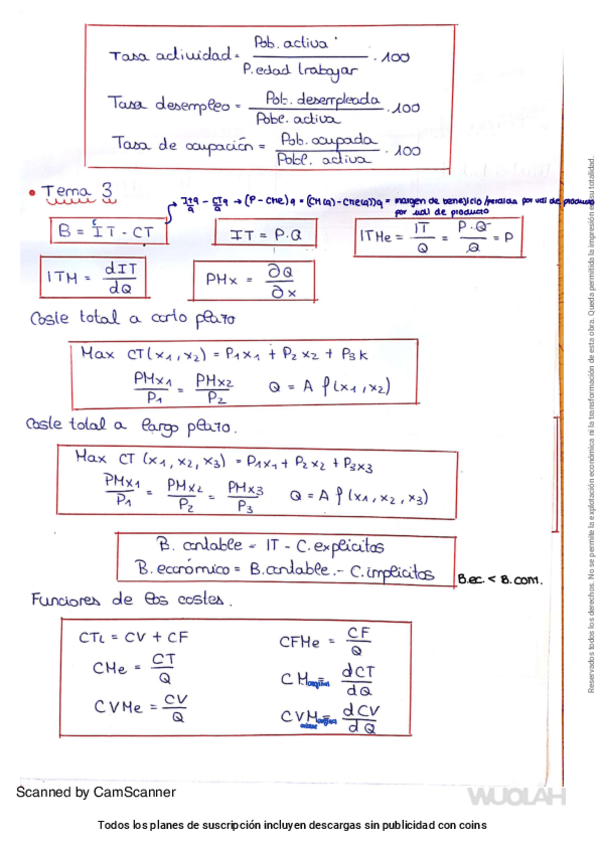 Tasa actividad = Pob. activa / P. edad trabajar · 100
Tasa desempleo = Pob. desempleada / Pobl. activa · 100
Tasa de ocupación = Pob. ocupada / Pobl. activa · 100
• Tema 3
→ (P - CMe) q = (CM(q) - CMe(q)) q = margen de beneficio/perdida por udi de producto
por udi de producto
B = IT - CT
IT = P.Q
ITMe = IT / Q = P.Q / Q = P
ITM = dIT / dQ
PMx = ∂Q / ∂x
Coste total a corto plazo
Max CT(x1, x2) = P1x1 + P2x2 + P3k
PMx1 / P1 = PMx2 / P2 Q = A f(x1, x2)
Coste total a largo plazo.
Max CT (x1, x2, x3) = P1x1 + P2x2 + P3x3
PMx1 / P1 = PMx2 / P2 = PMx3 / P3 Q = A f(x1, x2, x3)
B. contable = IT - C. explicitos
B. económico = B. contable. - C. implicitos
B.ec. < B. con.
Funciones de los costes.
CTL = CV + CF
CFMe = CF / Q
CMe = CT / Q
CMarginal = dCT / dQ
CVMe = CV / Q
CVM = dCV / dQ
Reservados todos los derechos. No se permite la explotación económica ni la transformación de esta obra. Queda permitida la impresión en su totalidad.
Scanned by CamScanner
WUOLAH
Todos los planes de suscripción incluyen descargas sin publicidad con coins